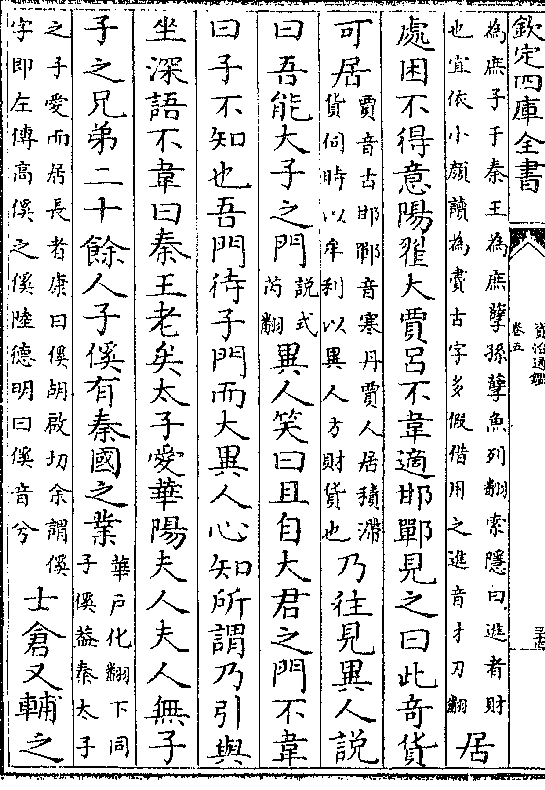 欽定四庫全書
資治通鑑
卷五
為庶子于秦王為庶孽孫孽魚列翻索隱曰進者財
也宜依小顔讀為賮古字多假借用之進音才刃翻
居
處困不得意陽翟大賈吕不韋適邯鄲見之曰此奇貨
可居
賈音古邯鄲音寒丹賈人居積滯
貨伺時以牟利以異人方財貨也
乃往見異人說
曰吾能大子之門
說式
芮翻
異人笑曰且自大君之門不韋
曰子不知也吾門待子門而大異人心知所謂乃引與
坐深語不韋曰秦王老矣太子愛華陽夫人夫人無子
子之兄弟二十餘人子傒有秦國之業
華戶化翻下同
子傒葢秦太子
之子愛而居長者康曰傒胡啟切余謂傒
字即左傳高傒之傒陸德明曰傒音兮
士倉又輔之